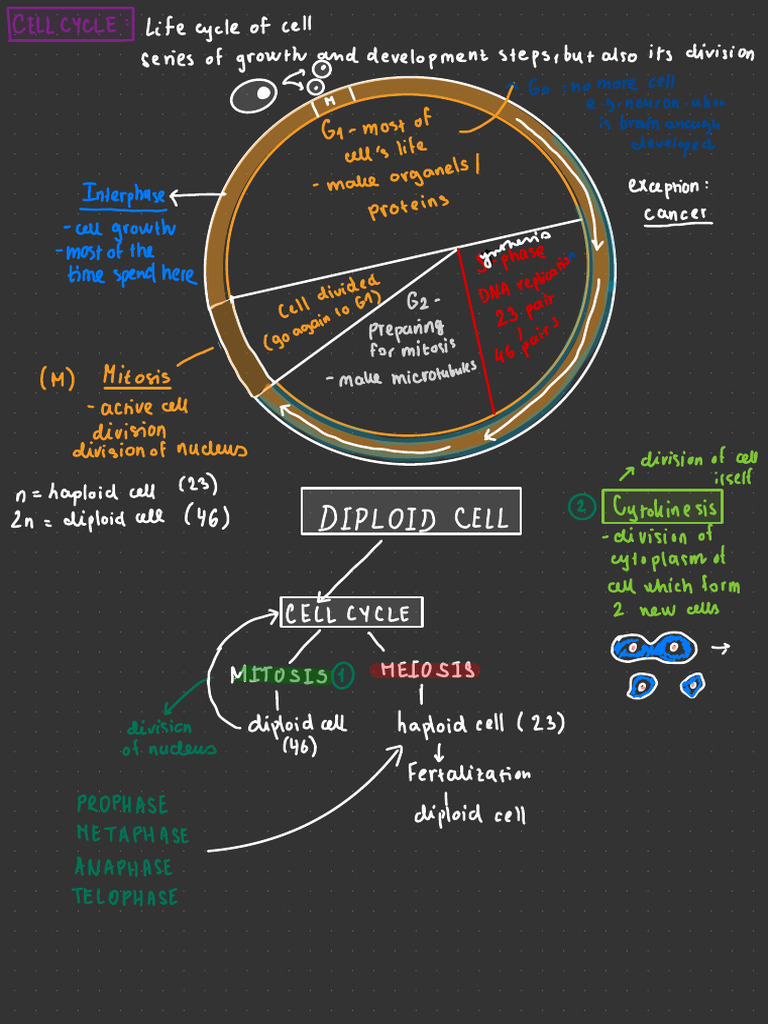 CELL CYCLE:
Life cycle of cell
series of growth and development steps, but also its division
M
G1 - most of
cell's life
- make organels /
proteins
G0 : no more cell
e.g. neuron - when
is brain enough
developed
exception:
cancer
Interphase
- cell growth
- most of the
time spend here
S-phase
ynthesis
DNA replication
23 pair
46 pairs
G2 -
preparing
for mitosis
- make microtubules
Cell divided
(go again to G1)
(M) Mitosis
- active cell
division
division of nucleus
n = haploid cell (23)
2n = diploid cell (46)
DIPLOID CELL
division of cell
itself
2 Cytokinesis
- division of
cytoplasm of
cell which form
2 new cells
CELL CYCLE
MITOSIS 1
MEIOSIS
division
of nucleus
diploid cell
(46)
haploid cell (23)
Fertalization
diploid cell
PROPHASE
METAPHASE
ANAPHASE
TELOPHASE